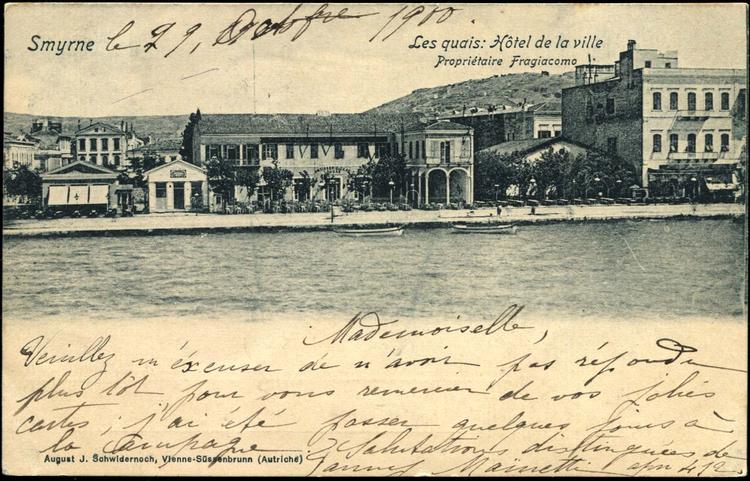 Smyrne le 29, Octobre 1900
Les quais: Hôtel de la ville
Propriétaire Fragiacomo
Mademoiselle,
Veuillez m'éxcuser de n'avoir pas répondre
plus tôt, pour vous remercier de vos jolies
cartes; j'ai été passer quelques jours à
la campagne. Salutations distinguées de
August J. Schwidernoch, Vienne-Süssenbrunn (Autriche)
Fanny Mainetti